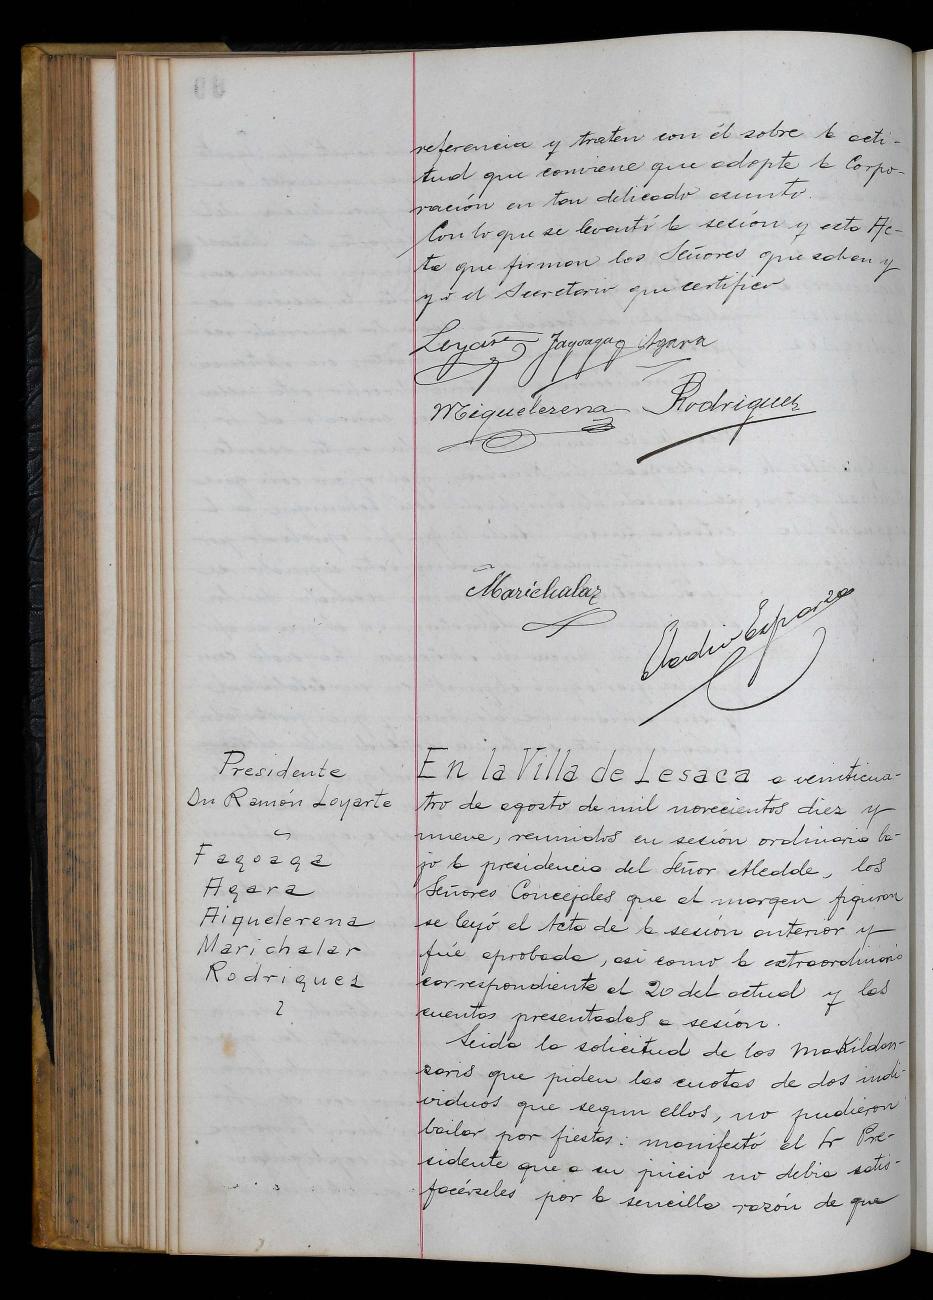 referencia y traten con él sobre la acti-
tud que conviene que adopte la Corpo-
ración en tan delicado asunto.
Con lo que se levantó la sesión y esta Ac-
ta que firman los Señores que saben y
yo el Secretario que certifico
Loyarte Fagoaga Agara
Miguelerena Rodriguez
Marichalar
Eladio Esparza
Presidente
Dn Ramón Loyarte
Fagoaga
Agara
Miguelerena
Marichalar
Rodriguez
En la Villa de Lesaca a veinticua-
tro de agosto de mil novecientos diez y
nueve, reunidos en sesión ordinaria ba-
jo la presidencia del Señor Alcalde, los
Señores Concejales que al margen figuran
se leyó el Acta de la sesión anterior y
fué aprobada, asi como la extraordinaria
correspondiente al 20 del actual y las
cuentas presentadas a sesión.
Leida la solicitud de los makildan-
zaris que piden las cuotas de dos indi-
viduos que segun ellos, no pudieron
bailar por fiestas: manifestó el Sr Pre-
sidente que a su juicio no debia satis-
facérseles por la sencilla razón de que